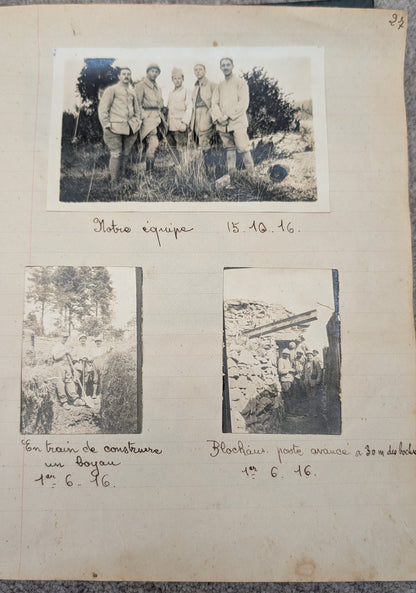 27
Notre équipe 15.10.16.
En train de construire
un boyau
1er 6. 16.
Blockaus. poste avancé a 30 m des boches
1er 6. 16.